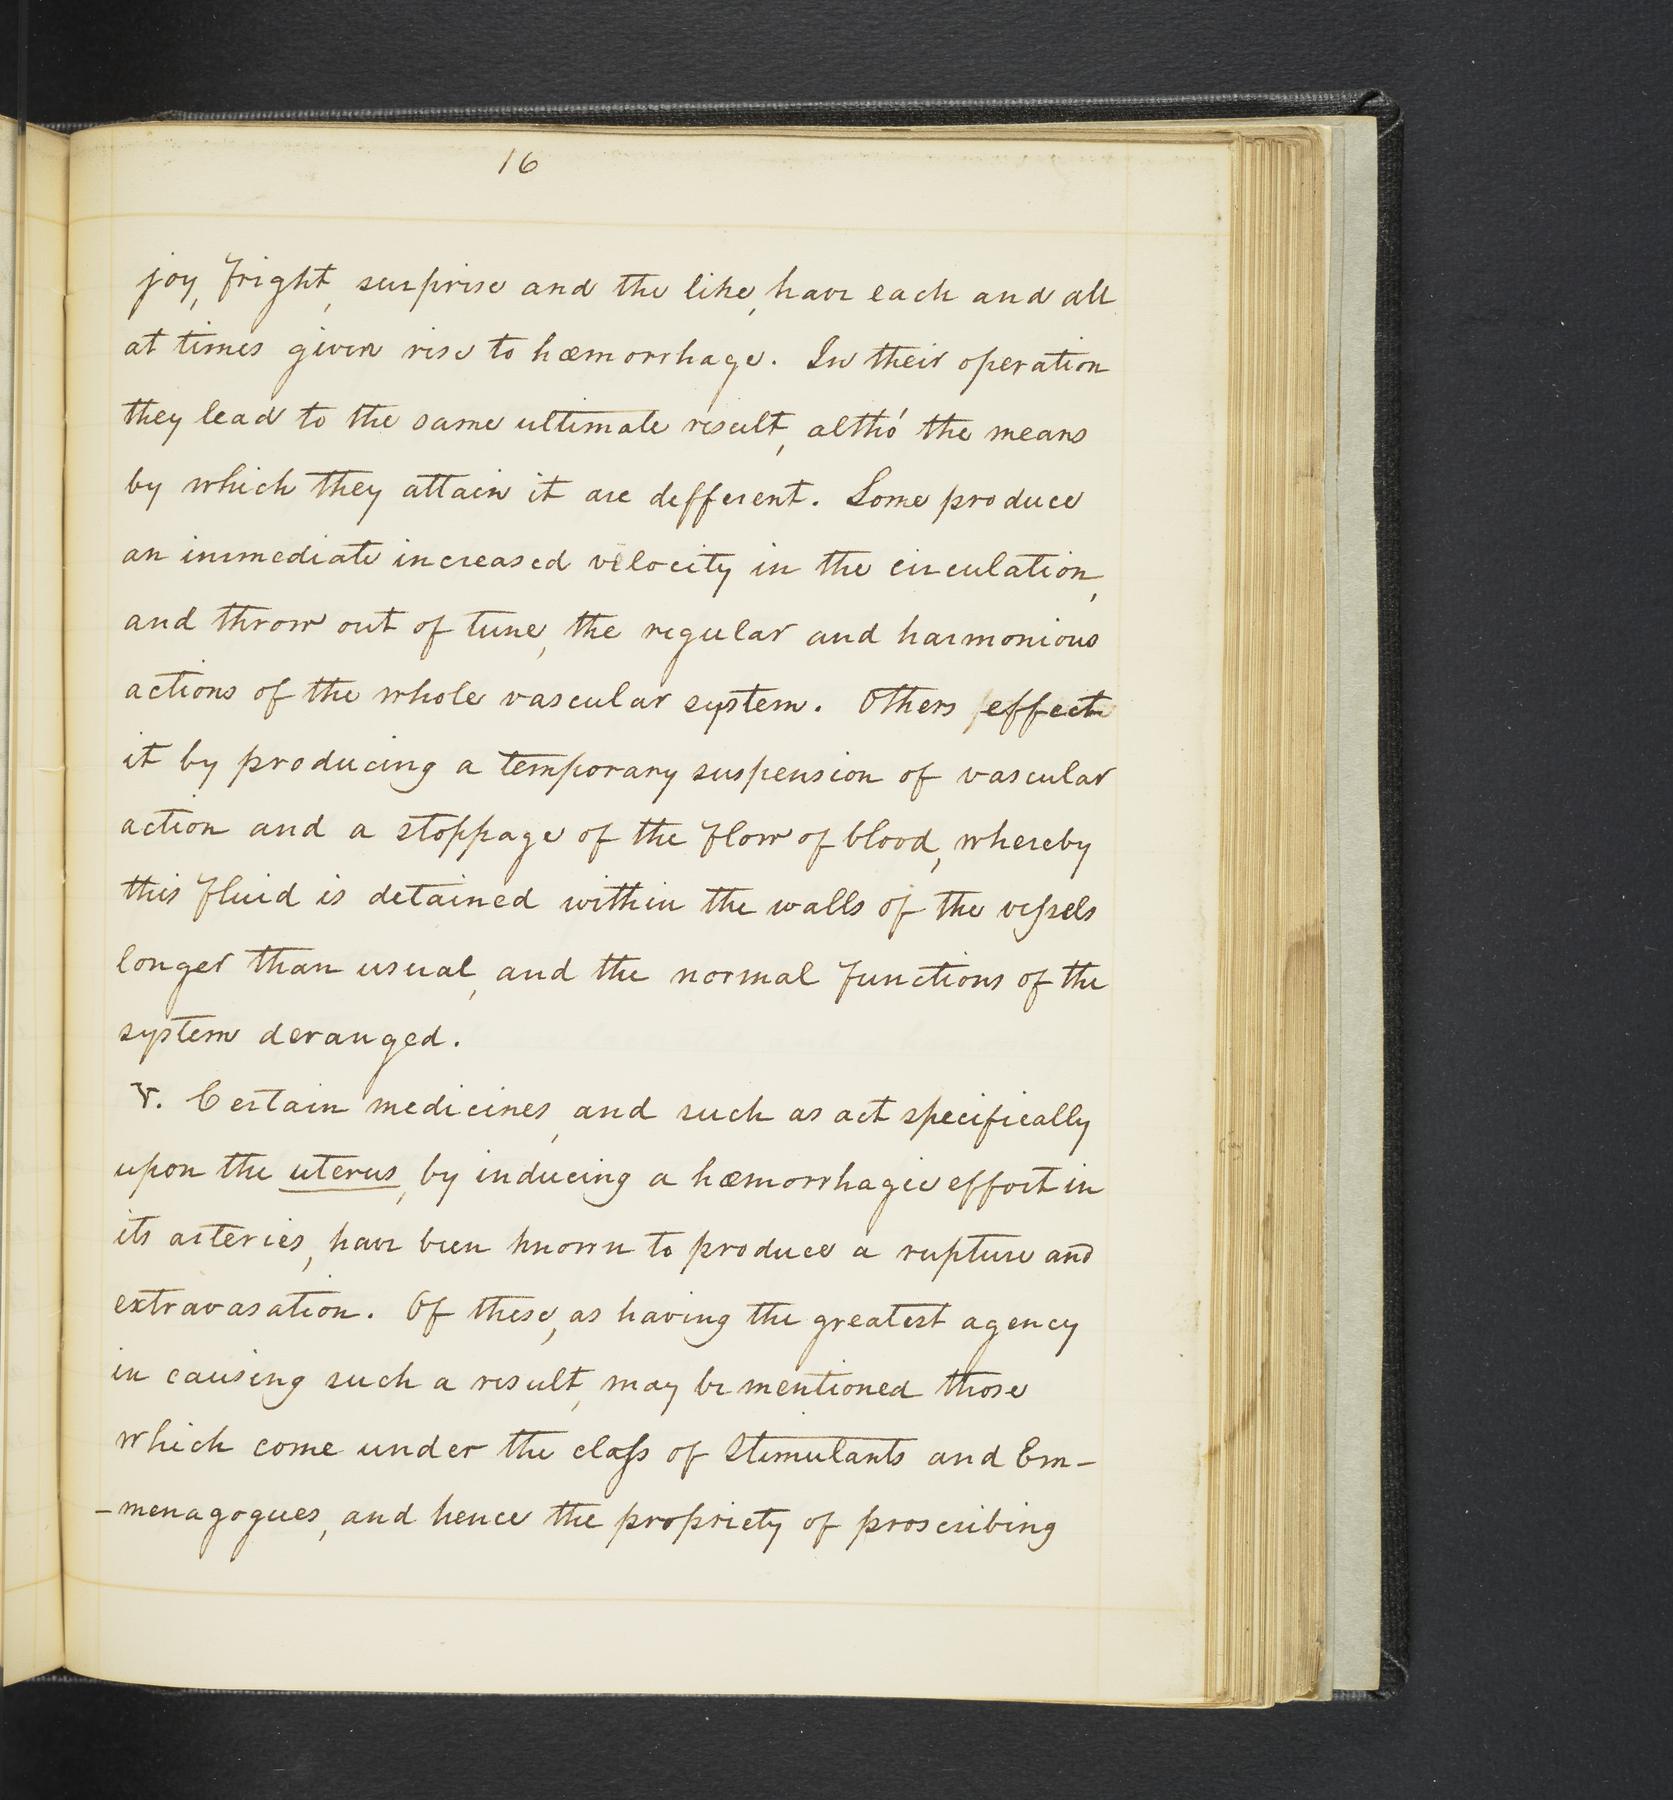 16
joy, fright, surprise and the like, have each and all
at times given rise to hæmorrhage. In their operation
they lead to the same ultimate result, altho' the means
by which they attain it are different. Some produce
an immediate increased velocity in the circulation,
and throw out of tune, the regular and harmonious
actions of the whole vascular system. Others effect
it by producing a temporary suspension of vascular
action and a stoppage of the flow of blood, whereby
this fluid is detained within the walls of the veſsels
longer than usual, and the normal functions of the
system deranged.
V. Certain medicines, and such as act specifically
upon the uterus, by inducing a hæmorrhagic effort in
its arteries, have been known to produce a rupture and
extravasation. Of these, as having the greatest agency
in causing such a result, may be mentioned those
which come under the claſs of Stimulants and Em-
-menagogues, and hence the propriety of proscribing